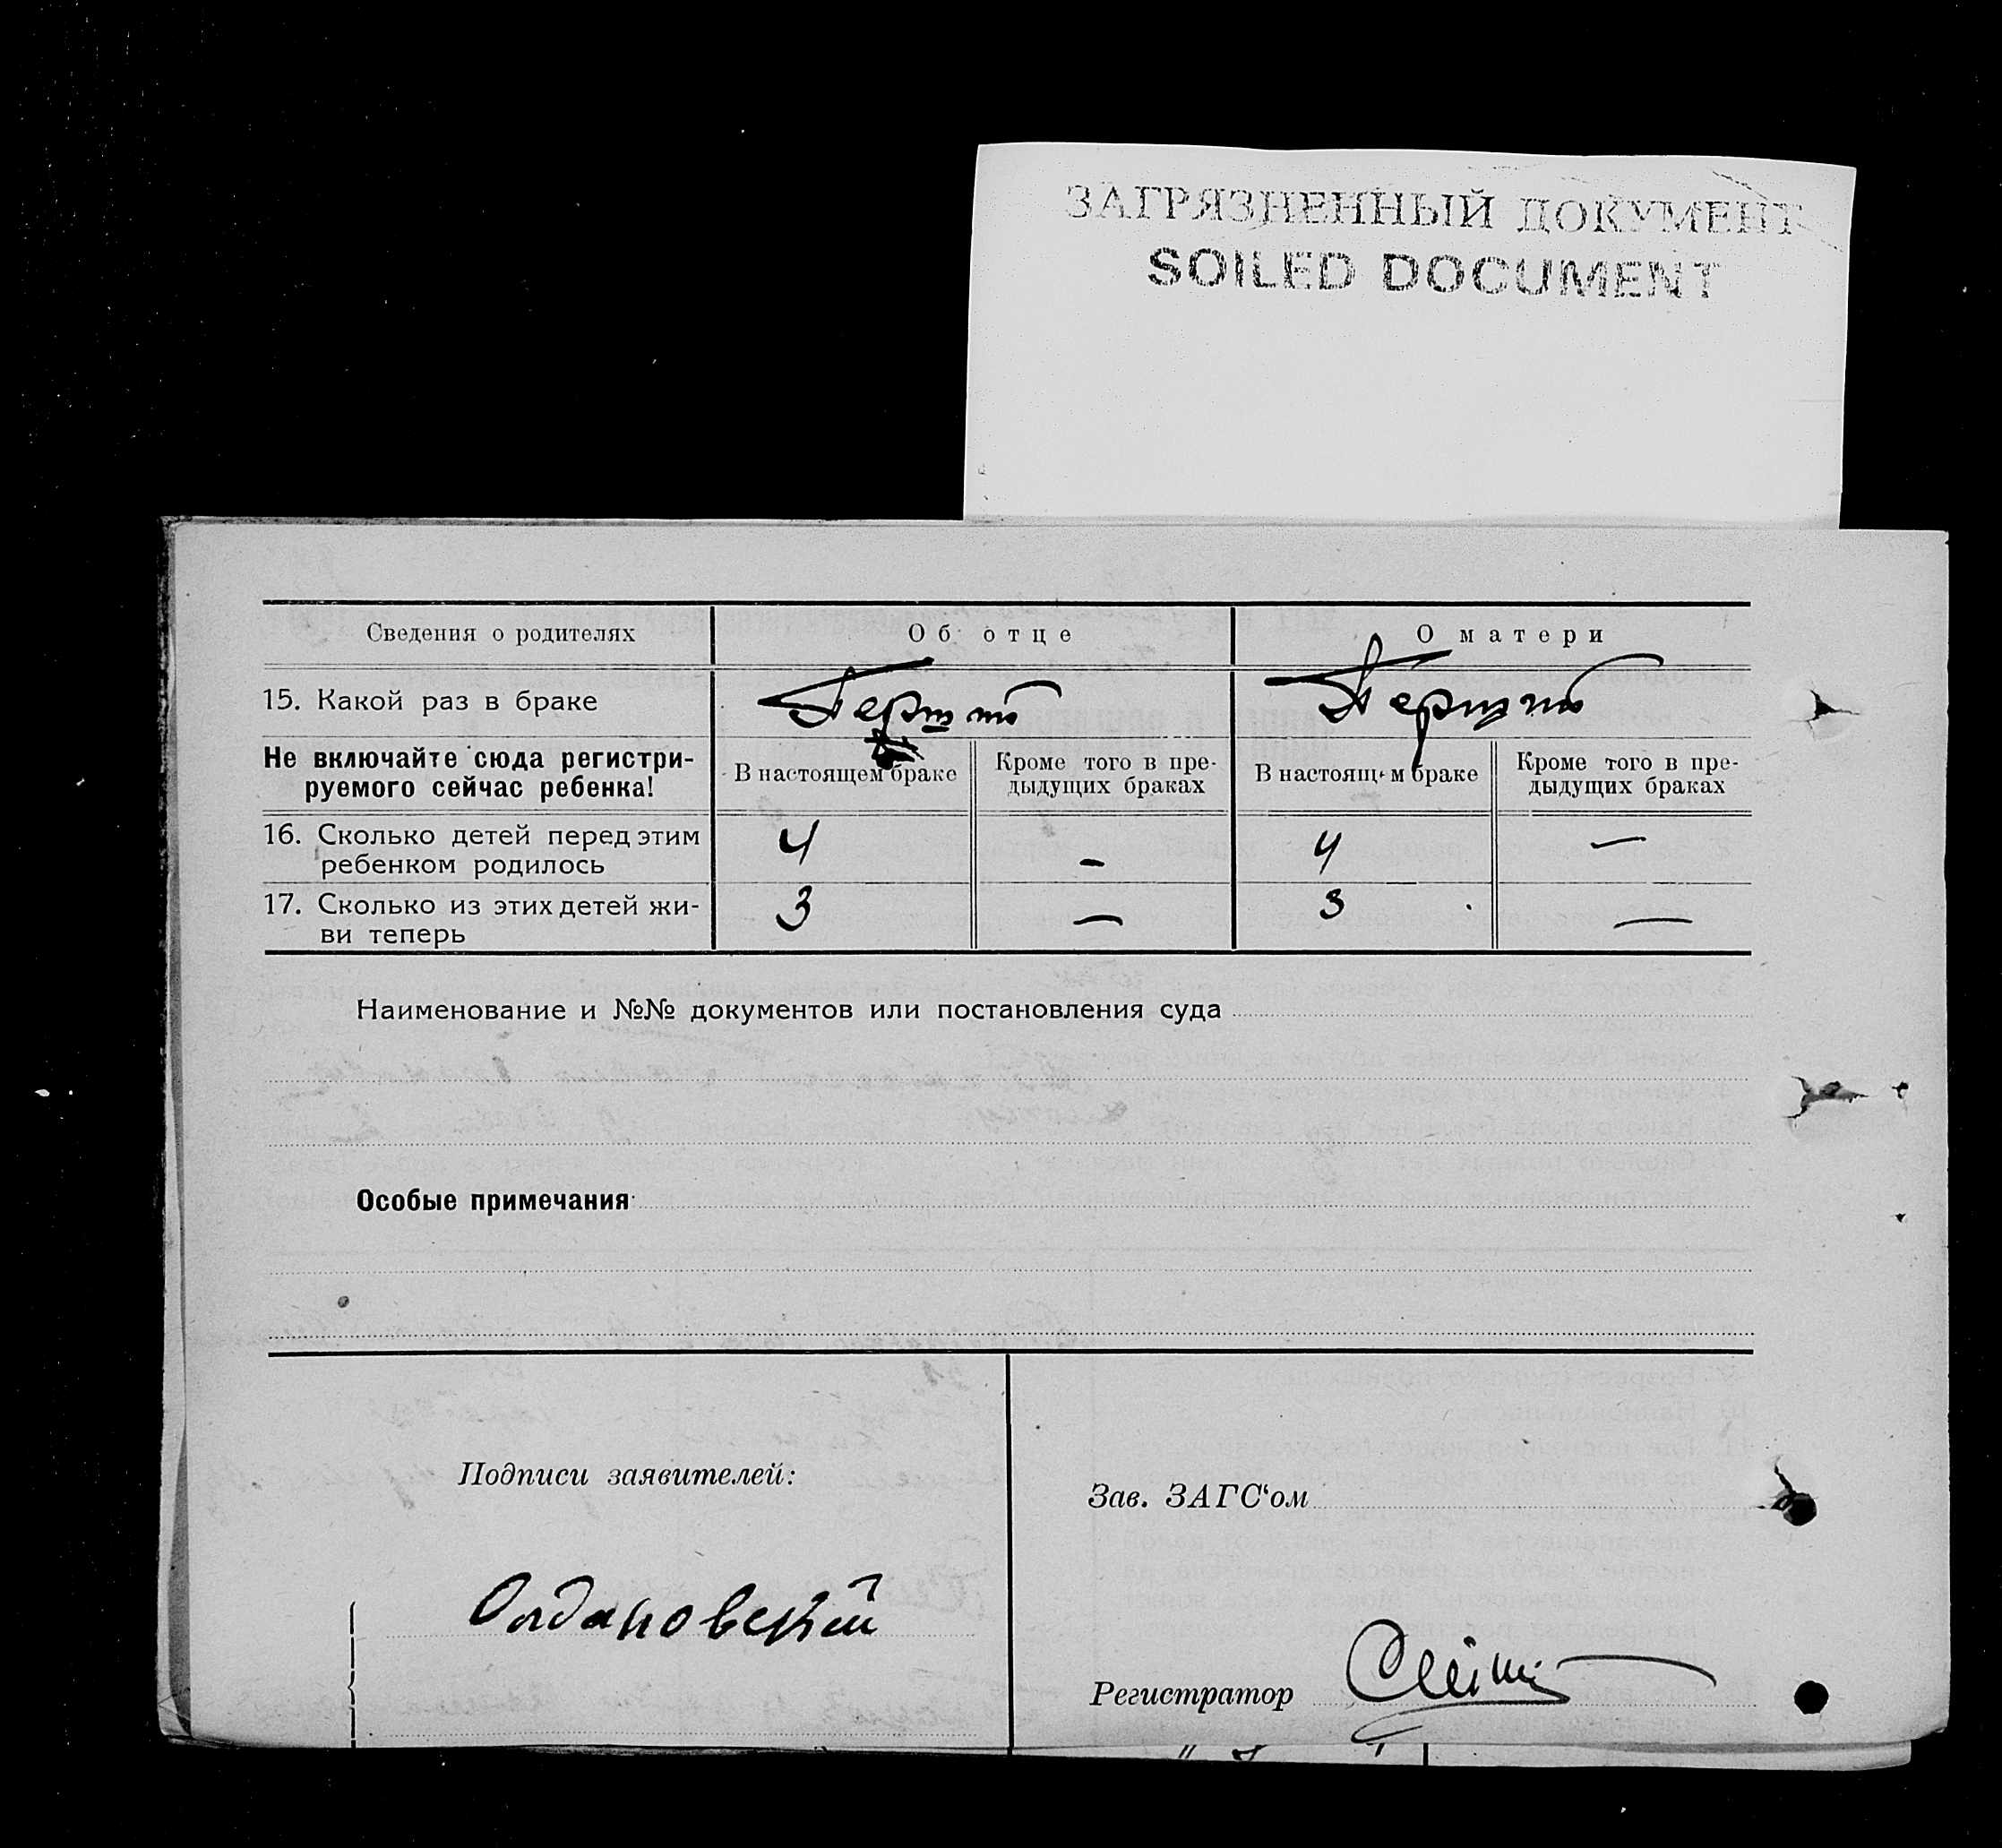 ЗАГРЯЗНЕННЫЙ ДОКУМЕНТ
SOILED DOCUMENT
Сведения о родителях
Об отце
О матери
15. Какой раз в браке
Не включайте сюда регистри-
руемого сейчас ребенка!
В настоящем браке
Кроме того в пре-
дыдущих браках
В настоящем браке
Кроме того в пре-
дыдущих браках
16. Сколько детей перед этим
ребенком родилось
4
–
4
—
17. Сколько из этих детей жи-
ви теперь
3
—
3
—
Наименование и №№ документов или постановления суда
Особые примечания
Подписи заявителей:
Зав. ЗАГС‘ом
Регистратор